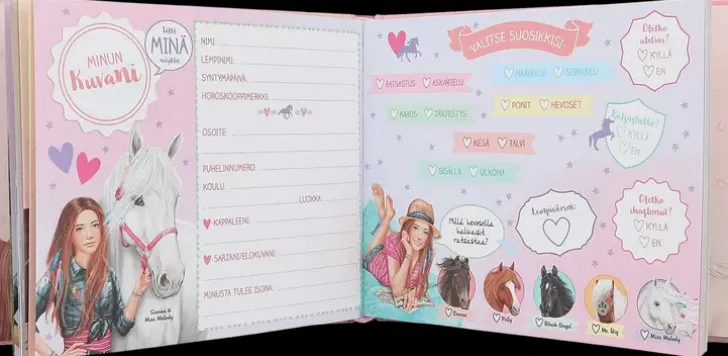 MINUN
Kuvani
Tältä
MINÄ
näytän
NIMI:
LEMPINIMI:
SYNTYMÄPÄIVÄ:
HOROSKOOPPIMERKKI:
OSOITE:
PUHELINNUMERO:
KOULU:
LUOKKA:
-KAPPALEENI:
-SARJANI/ELOKUVANI:
MINUSTA TULEE ISONA:
Sienna &
Miss Melody
VALITSE SUOSIKKISI
RATSASTUS ASKARTELU
MAKEILU SEIKKAILU
KAAOS JÄRJESTYS
PONIT HEVOSET
KESÄ TALVI
SISÄLLÄ ULKONA
Oletko
utelias?
KYLLÄ
EN
Ratsastatko?
KYLLÄ
EN
Oletko
ihastunut?
KYLLÄ
EN
Millä hevosella
haluaisit
ratsastaa?
Lempivärini:
Polly
Black Angel
Mr. Big
Miss Melody